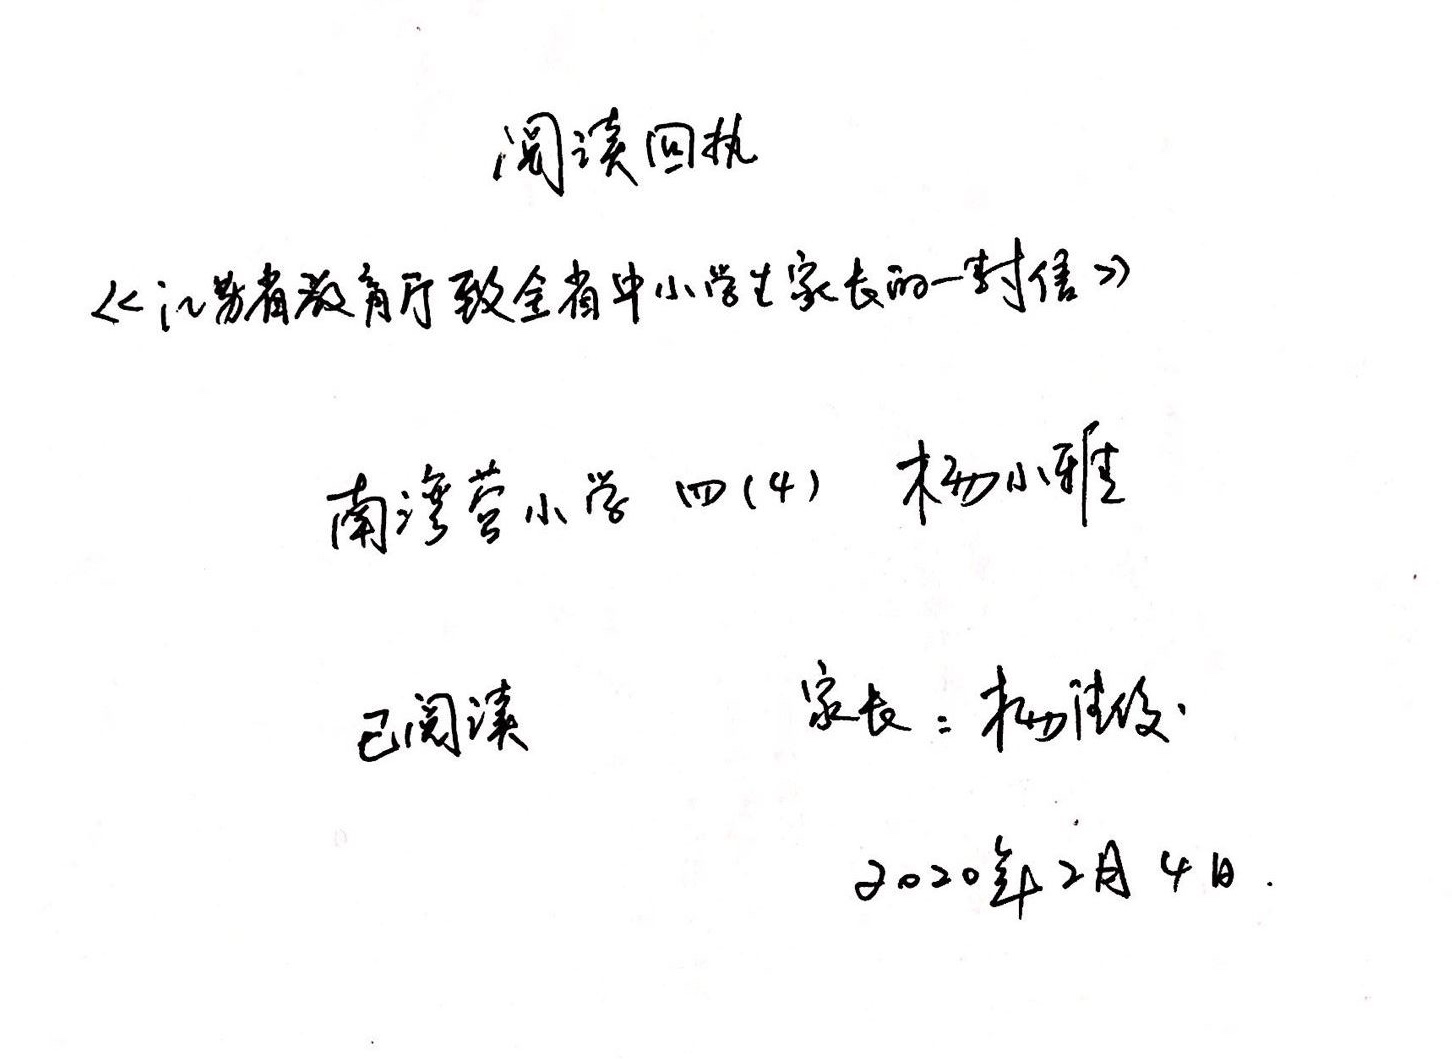 阅读回执
《江苏省教育厅致全省中小学生家长的一封信》
南湾营小学 四(4) 杨小雅
已阅读 家长：杨佳俊.
2020年2月4日.